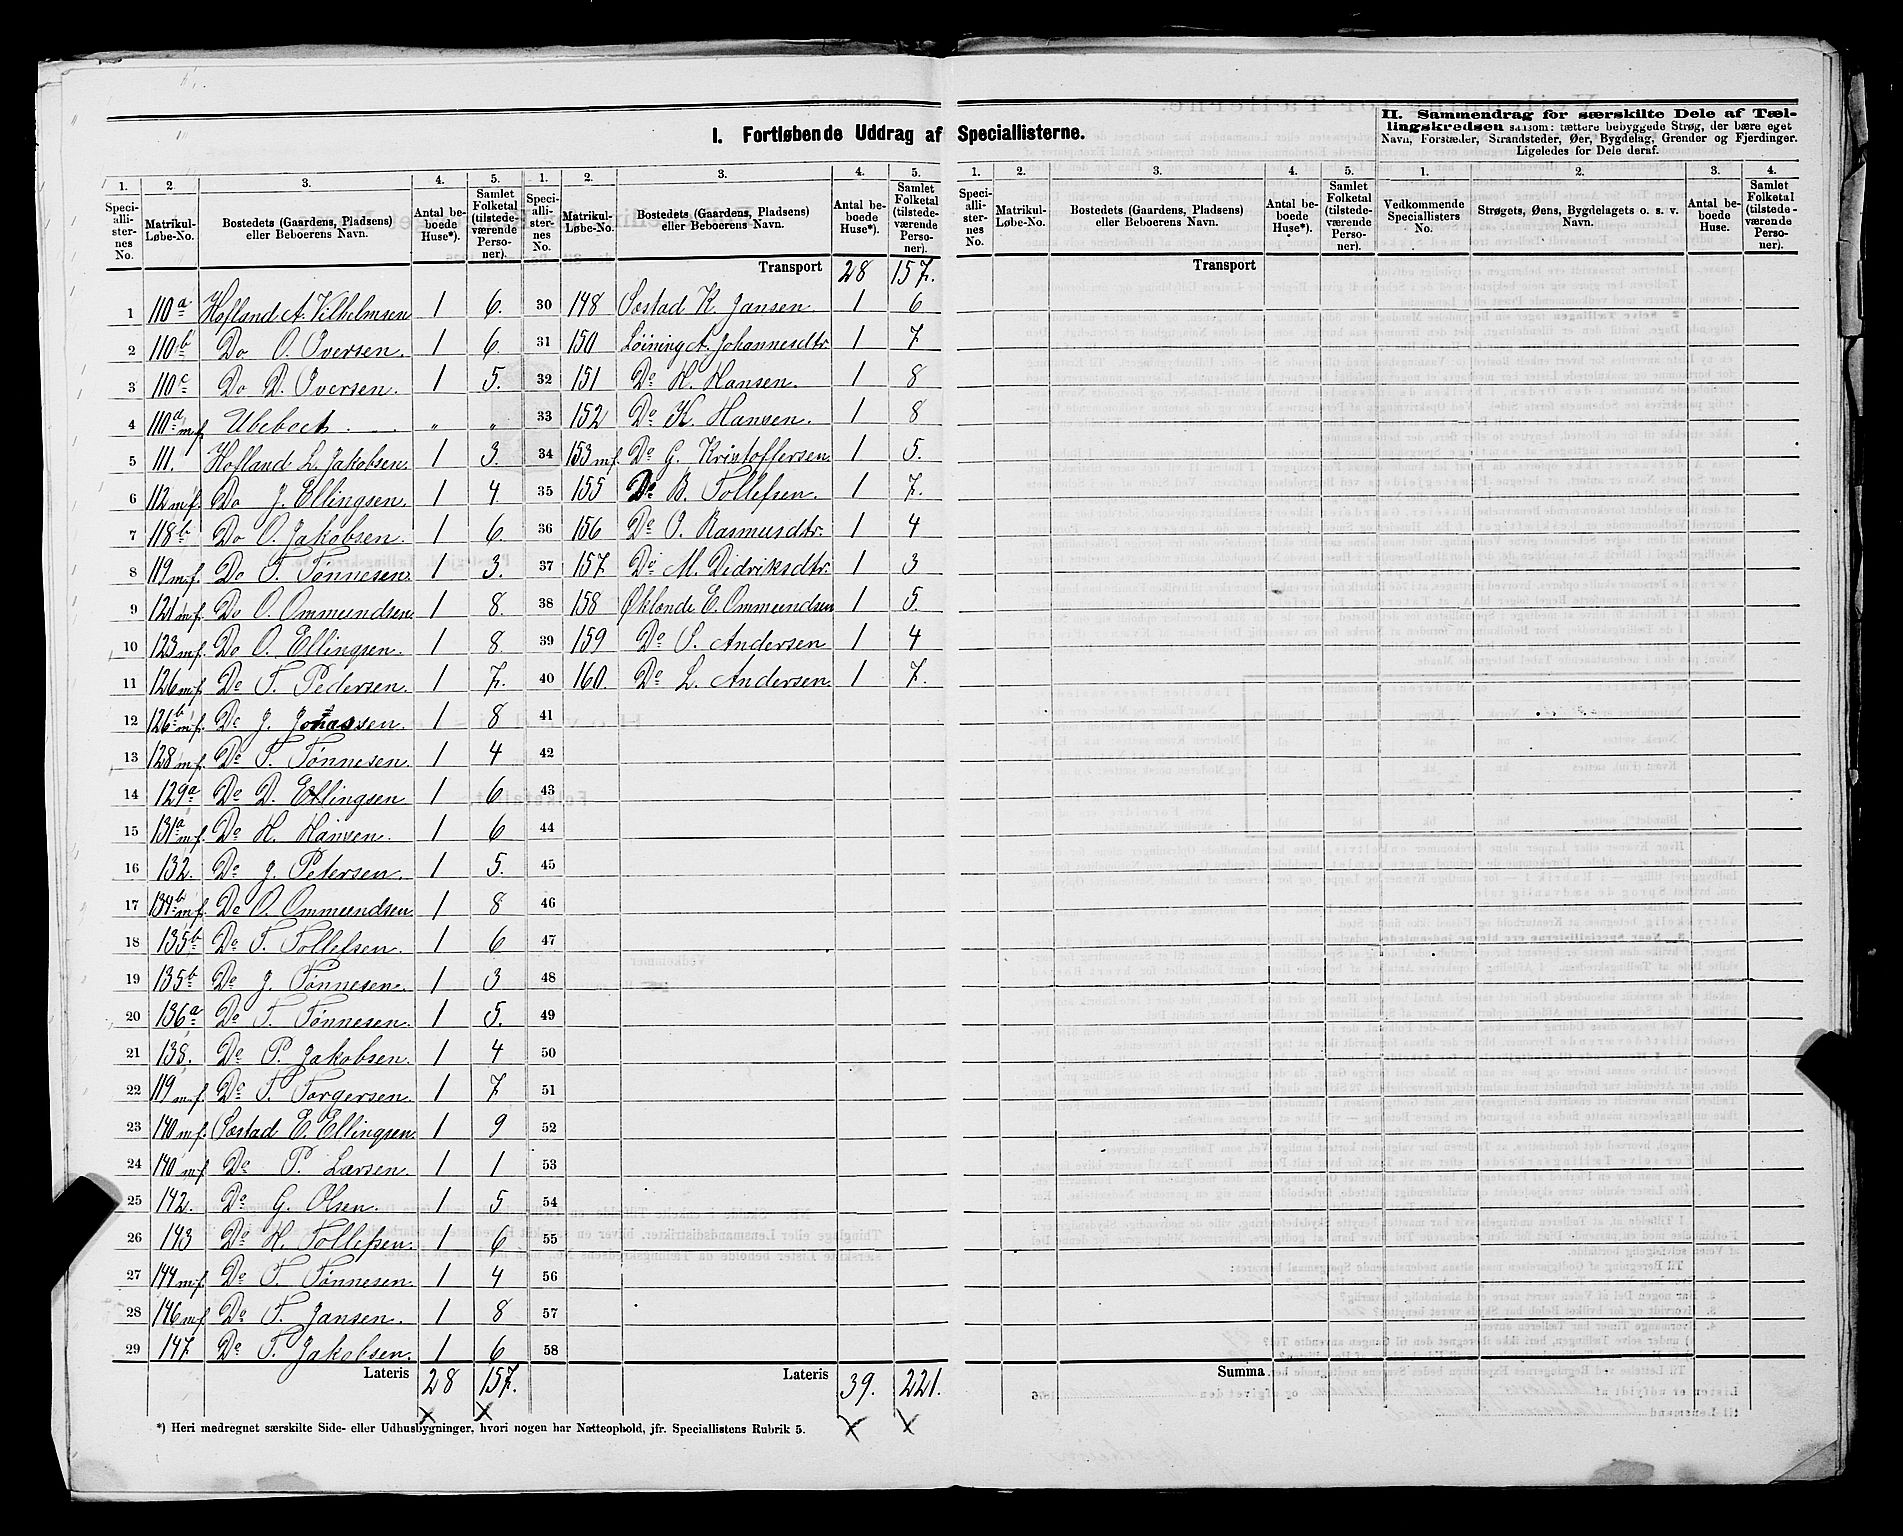 I. Fortløbende Uddrag af Speciallisterne.
II. Sammendrag for særskilte Dele af Tællingskredsen saasom: tættere bebyggede Strøg, der bære eget Navn, Forstæder, Strandsteder, Øer, Bygdelag, Grender og Fjerdinger. Ligeledes for Dele deraf.
1. 2. 3. 4. 5. 1. 2. 3. 4. 5. 1. 2. 3. 4. 5. 1. 2. 3. 4.
Speciallisternes No. Matrikul-Løbe-No. Bostedets (Gaardens, Pladsens) eller Beboerens Navn. Antal beboede Huse*). Samlet Folketal (tilstedeværende Personer).
Speciallisternes No. Matrikul-Løbe-No. Bostedets (Gaardens, Pladsens) eller Beboerens Navn. Antal beboede Huse*). Samlet Folketal (tilstedeværende Personer).
Speciallisternes No. Matrikul-Løbe-No. Bostedets (Gaardens, Pladsens) eller Beboerens Navn. Antal beboede Huse*). Samlet Folketal (tilstedeværende Personer).
Vedkommende Speciallisters No. Strøgets, Øens, Bygdelagets o. s. v. Navn. Antal beboede Huse. Samlet Folketal (tilstedeværende Personer).
1 110a Hofland A. Vilhelmsen 1 6.
2 110b Do O. Iversen. 1 6.
3 110c Do D. Iversen. 1 5.
4 110d m.f. Ubeboet " "
5 111. Hofland L. Jakobsen. 1 3.
6 112 m.f. Do J. Ellingsen. 1 4.
7 118b Do O. Jakobsen. 1 6.
8 119 m.f. Do T. Tønnesen. 1 3.
9 121 m.f. Do O. Ommundsen. 1 8.
10 123 m.f. Do O. Ellingsen. 1 8
11 126 m.f. Do T. Pedersen. 1 7.
12 126b m.f. Do J. Jonassen. 1 8
13 128 m.f. Do T. Tønnesen. 1 4
14 129a Do D. Ellingsen. 1 6
15 131a m.f. Do H. Hansen. 1 6
16 132. Do J. Petersen. 1 5.
17 134b m.f. Do O. Ommundsen. 1 8
18 135b Do T. Tollefsen. 1 6
19 135b Do J. Tønnesen. 1 3
20 136a Do T. Tønnesen. 1 5.
21 138. Do P. Jakobsen. 1 4
22 119 m.f. Do T. Torgersen. 1 7
23 140 m.f. Sæstad E. Ellingsen. 1 9
24 140 m.f. Do P. Larsen. 1 1
25 142. Do G. Olsen. 1 5
26 143 Do H. Tollefsen. 1 6
27 144 m.f. Do T. Tønnesen. 1 4
28 146 m.f Do T. Jansen. 1 8
29 147. Do T. Jakobsen. 1 6
Lateris 28 157.
Transport 28 157.
30 148 Sæstad K. Jansen. 1 6
31 150 Loining A. Johannesdtr 1 7
32 151 Do H. Hansen. 1 8
33 152 Do K. Hansen. 1 8
34 153 m.f. Do G. Kristoffersen. 1 5.
35 155 Do B. Tollefsen. 1 7.
36 156 Do O. Rasmusdtr. 1 4
37 157. Do M. Didriksdtr. 1 3
38 158 Øklande E. Ommundsen 1 5.
39 159 Do S. Andersen 1 4
40 160. Do L. Andersen. 1 7.
41
42
43
44
45
46
47
48
49
50
51
52
53
54
55
56
57
58
Lateris 39. 221.
Transport
Summa
*) Heri medregnet særskilte Side- eller Udhusbygninger, hvori nogen har Natteophold, jfr. Speciallistens Rubrik 5.